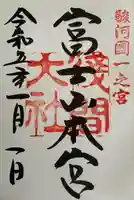 駿河國一之宮
富士山本宮
浅間大社
令和五年一月一日